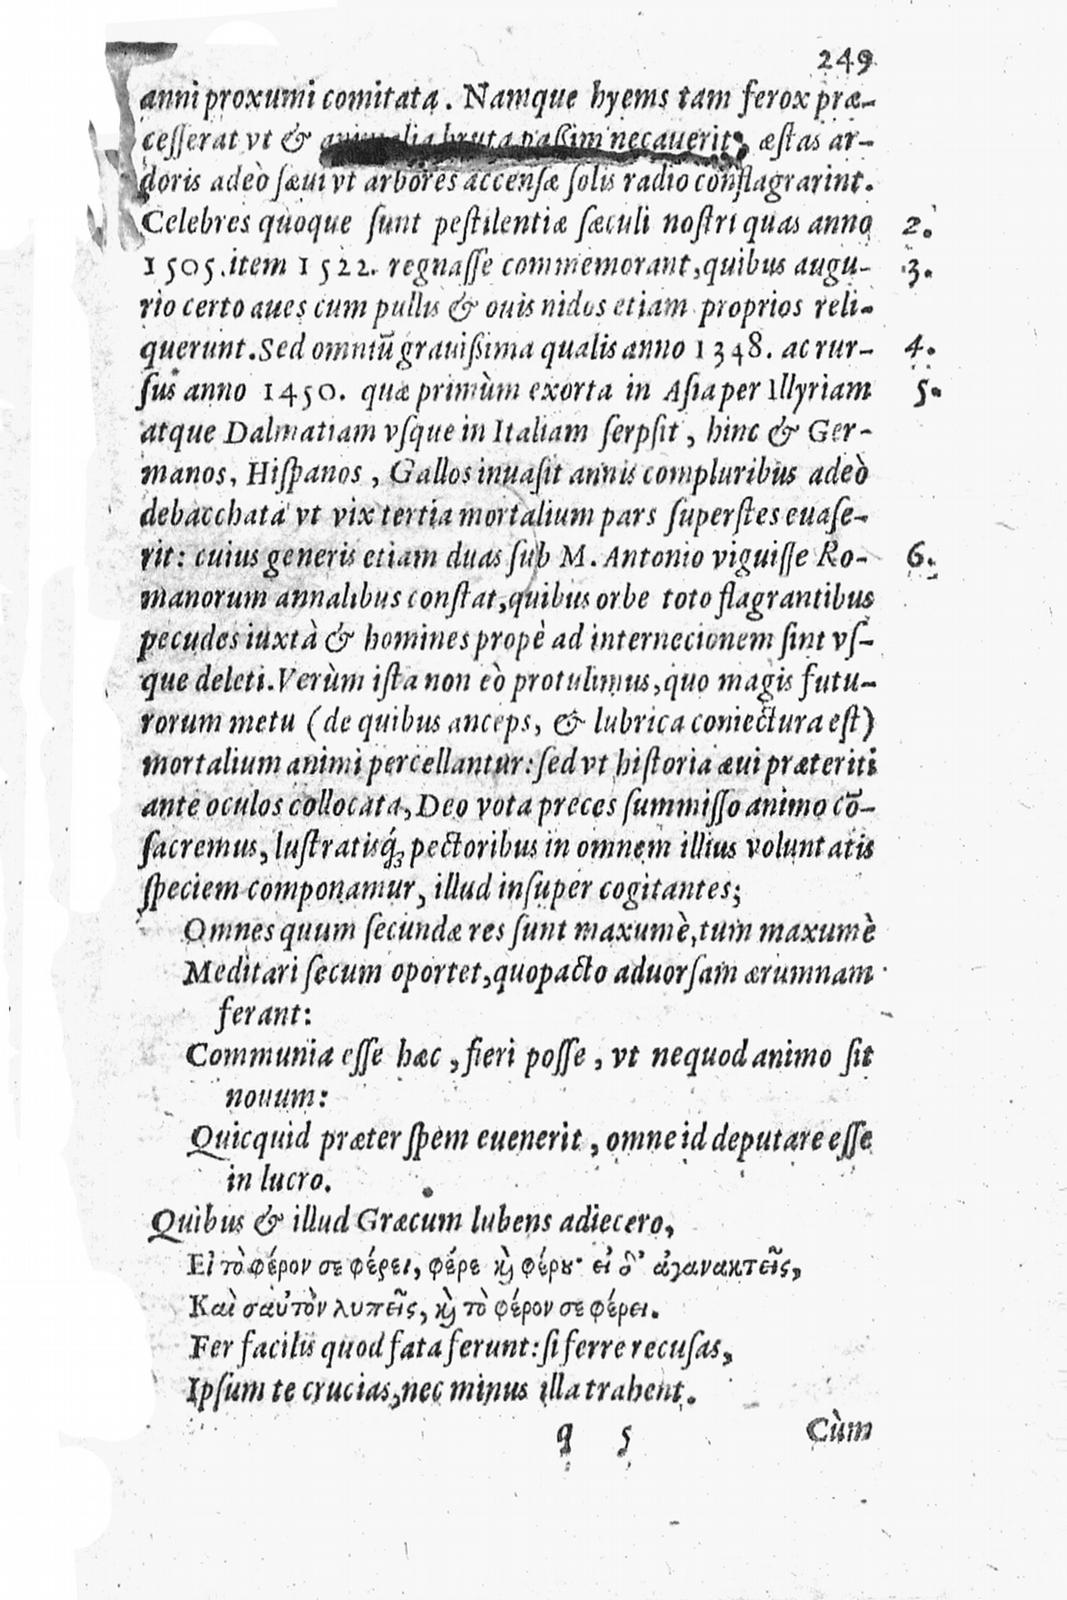 249
anni proxumi comitata. Namque hyems tam ferox præ-
ceſſerat vt & animalia bruta paßim necauerit, æſtas ar-
doris adeò ſæui vt arbores accenſæ ſolis radio conflagrarint.
Celebres quoque ſunt peſtilentiæ ſæculi noſtri quas anno 2.
1505. item 1522. regnaſſe commemorant, quibus augu- 3.
rio certo aues cum pullis & ouis nidos etiam proprios reli-
querunt. Sed omniū grauißima qualis anno 1348. ac rur- 4.
ſus anno 1450. quæ primùm exorta in Aſia per Illyriam 5.
atque Dalmatiam vſque in Italiam ſerpſit, hinc & Ger-
manos, Hiſpanos, Gallos inuaſit annis compluribus adeò
debacchata vt vix tertia mortalium pars ſuperſtes euaſe-
rit: cuius generis etiam duas ſub M. Antonio viguiſſe Ro- 6.
manorum annalibus conſtat, quibus orbe toto flagrantibus
pecudes iuxtà & homines propè ad internecionem ſint vſ-
que deleti. Verùm iſta non eò protulimus, quo magis futu-
rorum metu (de quibus anceps, & lubrica coniectura eſt)
mortalium animi percellantur: ſed vt hiſtoria æui præteriti
ante oculos collocata, Deo vota preces ſummiſſo animo cō-
ſacremus, luſtratisq́ꝫ pectoribus in omnem illius voluntatis
ſpeciem componamur, illud inſuper cogitantes;
Omnes quum ſecundæ res ſunt maxumè, tum maxumè
Meditari ſecum oportet, quo pacto aduorſam ærumnam
ferant:
Communia eſſe hæc, fieri poſſe, vt nequod animo ſit
nouum:
Quicquid præter ſpem euenerit, omne id deputare eſſe
in lucro.
Quibus & illud Græcum lubens adiecero,
Εἰ τὸ φέρον σε φέρει, φέρε ϗ̀ φέρȣ· εἰ δ’ ἀγανακτεῖς,
Καὶ σαὐτὸν λυπεῖς, ϗ̀ τὸ φέρον σε φέρει.
Fer facilis quod fata ferunt: ſi ferre recuſas,
Ipſum te crucias, nec minus illa trahent.
q 5 Cùm